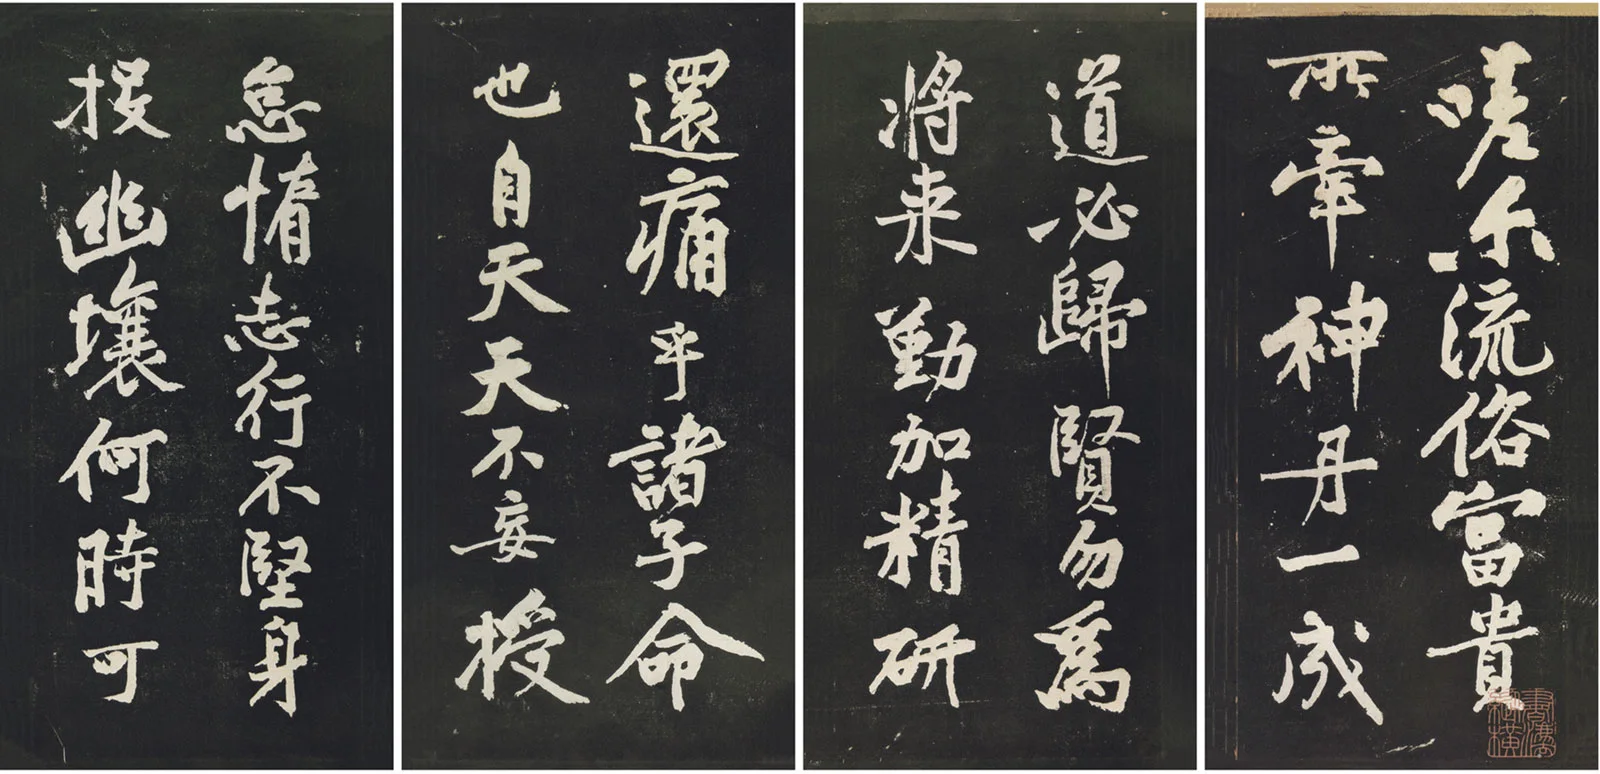 嗟尒流俗富貴
所牽神丹一成
道必歸賢勿爲
将来勤加精研
還痛乎諸子命
也自天天不妄授
怠惰志行不堅身
投幽壤何時可